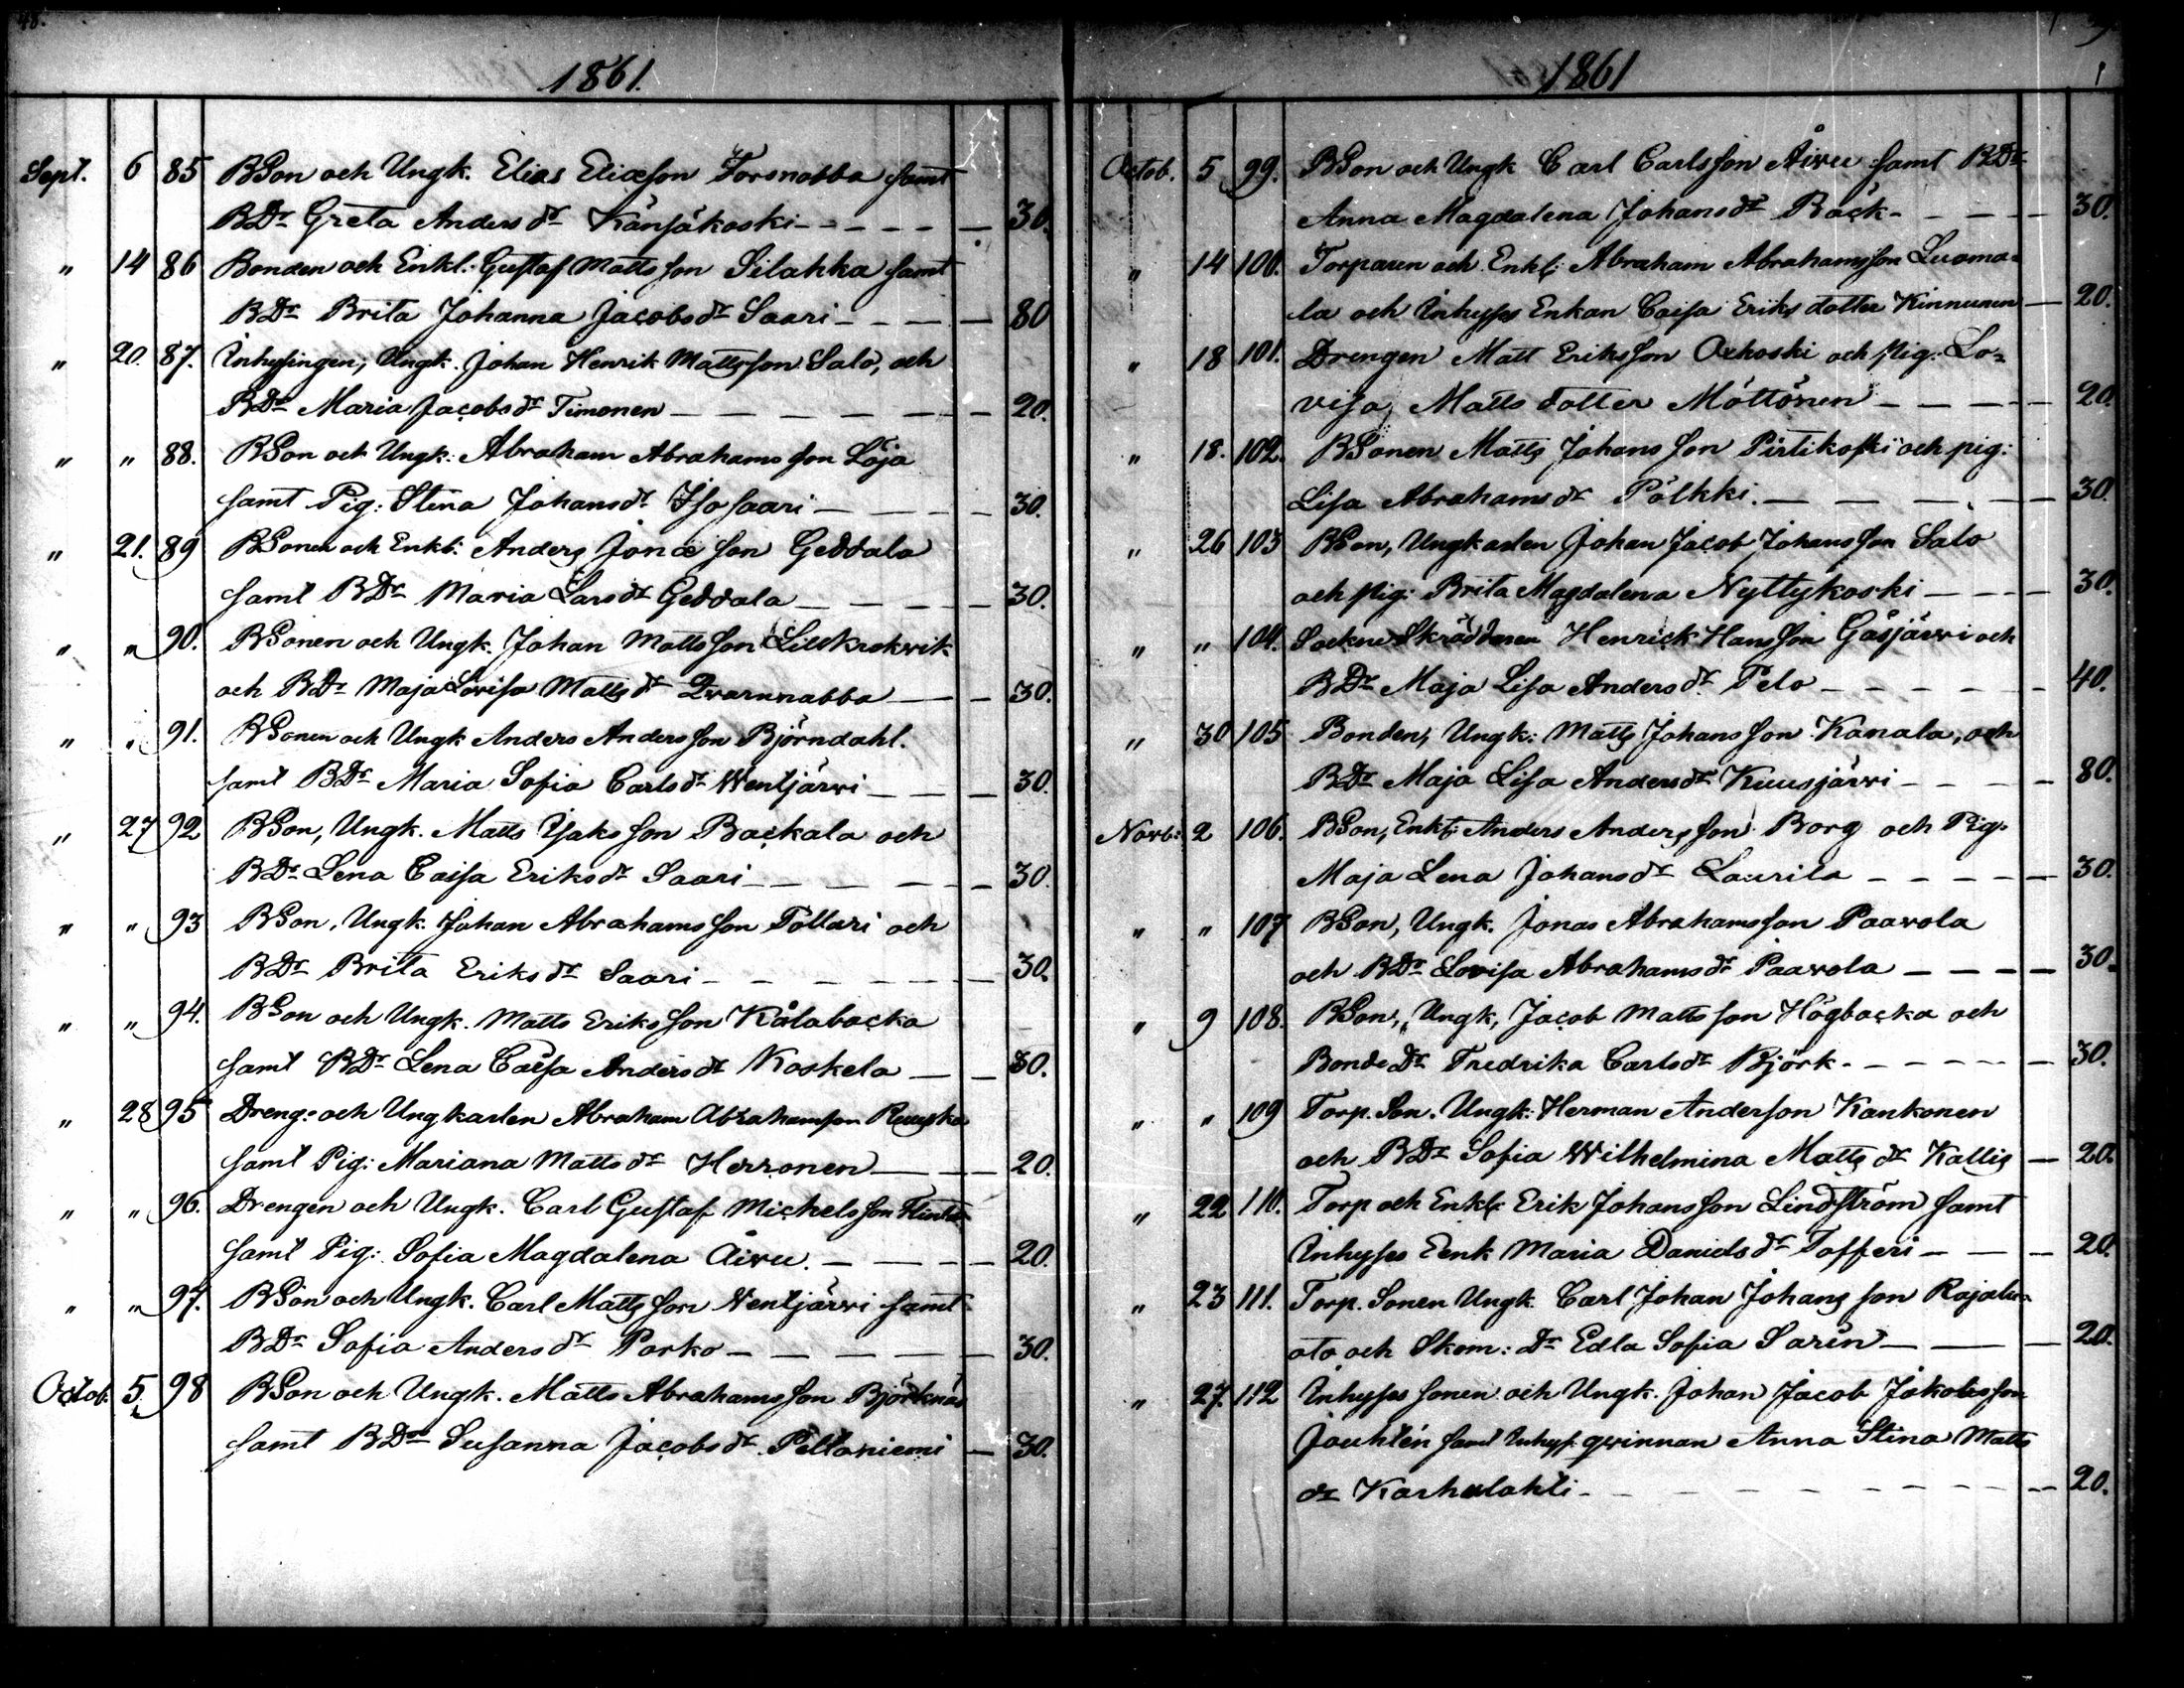 48.
1861.
Sept. 6 85 BSon och Ungk. Elias Eliæson Forsnabba samt
BDr Greta Anders dr Känsäkoski - - - - - 30.
" 14 86 Bonden och Enkl: Gustaf Mattsson Silahka samt
BDr Brita Johanna Jacobsdr Saari - - - - 80
" 20. 87. Inhysingen, Ungk. Johan Henrik Mattsson Salo, och
BDr Maria Jacobsdr Timonen - - - - - 20.
" " 88. BSon och Ungk: Abraham Abrahamsson Löja
samt Pig: Stina Johansdr Isosaari - - - - 30.
" 21. 89 BSonen och Enkl: Anders Jonæson Geddala
samt BDr Maria Larsdr Geddala - - - - 30.
" " 90. BSonen och Ungk. Johan Mattsson Lillkrokvik
och BDr Maja Lovisa Mattsdr Qvarnnabba - - 30.
" " 91. BSonen och Ungk Anders Andersson Björndahl.
samt BDr Maria Sofia Carlsdr Wentjärvi - - - 30.
" 27 92 BSon, Ungk. Matts Isaksson Backala och
BDr Lena Caisa Eriksdr Saari - - - - - 30.
" " 93 BSon, Ungk. Johan Abrahamsson Töllari och
BDr Brita Eriksdr Saari - - - - - - 30.
" " 94. BSon och Ungk. Matts Eriksson Kålabacka
samt BDr Lena Caisa Andersdr Koskela - - 30.
" 28 95 Dreng: och Ungkarlen Abraham Abrahamsson Ruuska
samt Pig: Mariana Mattsdr Herronen - - - 20.
" " 96. Drengen och Ungk. Carl Gustaf Michelsson
samt Pig: Sofia Magdalena Åivu. - - - - 20.
" " 97. BSon och Ungk. Carl Mattsson Wentjärvi samt
BDr Sofia Andersdr Porko - - - - - 30.
Octob. 5. 98 BSon och Ungk. Matts Abrahamsson Björknäs
samt BDr Susanna Jacobsdr Peltoniemi - 30.
1861
Octob. 5 99. BSon och Ungk Carl Carlsson Åivu samt BDr
Anna Magdalena Johansdr Back - - - - 30.
" 14 100. Torparen och Enkl: Abraham Abrahamsson Luoma-
la och Inhyses Enkan Caisa Eriks dotter Kinnunen - 20.
" 18 101. Drengen Matt Eriksson Oxkoski och pig: Lo-
visa Matts dotter Möttönen - - - - 20.
" 18. 102. BSonen Matts Johansson Pirtikoski och pig:
Lisa Abrahamsdr Pölkki. - - - - - 30.
" 26 103 BSon, Ungkarlen Johan Jacob Johansson Salo
och pig: Brita Magdalena Nyttykoski - - - - 30.
" " 104. Sockne Skräddaren Henrick Hansson Gåsjärvi och
BDr Maja Lisa Andersdr Pelo - - - - - - 40.
" 30 105 Bonden, Ungk: Matts Johansson Kanala, och
BDr Maja Lisa Andersdr Kuusjärvi - - - - 80.
Novb: 2 106. BSon, Enkl: Anders Andersson Borg och Pig.
Maja Lena Johansdr Laurila - - - - - 30.
" " 107 BSon, Ungk. Jonas Abrahamsson Paavola
och BDr Lovisa Abrahamsdr Paavola - - - - 30.
" 9 108. BSon, Ungk, Jacob Mattsson Högbacka och
BondeDr Fredrika Carlsdr Björk. - - - - - 30.
" " 109 Torp. Son. Ungk: Herman Anderson Kankonen
och BDr Sofia Wilhelmina Mattsdr Kallis - 20.
" 22 110. Torp och Enkl: Erik Johansson Lindström samt
Inhyses Eenk Maria Danielsdr Tofferi - - - 20.
" 23 111. Torp. Sonen Ungk. Carl Johan Johansson Rajalu-
oto och Skom: Dr Edla Sofia Sarin - - - 20.
" 27. 112 Inhyses sonen och Ungk. Johan Jacob Jakobsson
Jouhtén samt Inhys. qvinnan Anna Stina Matts
dr Karhulahti - - - - - - - - - 20.